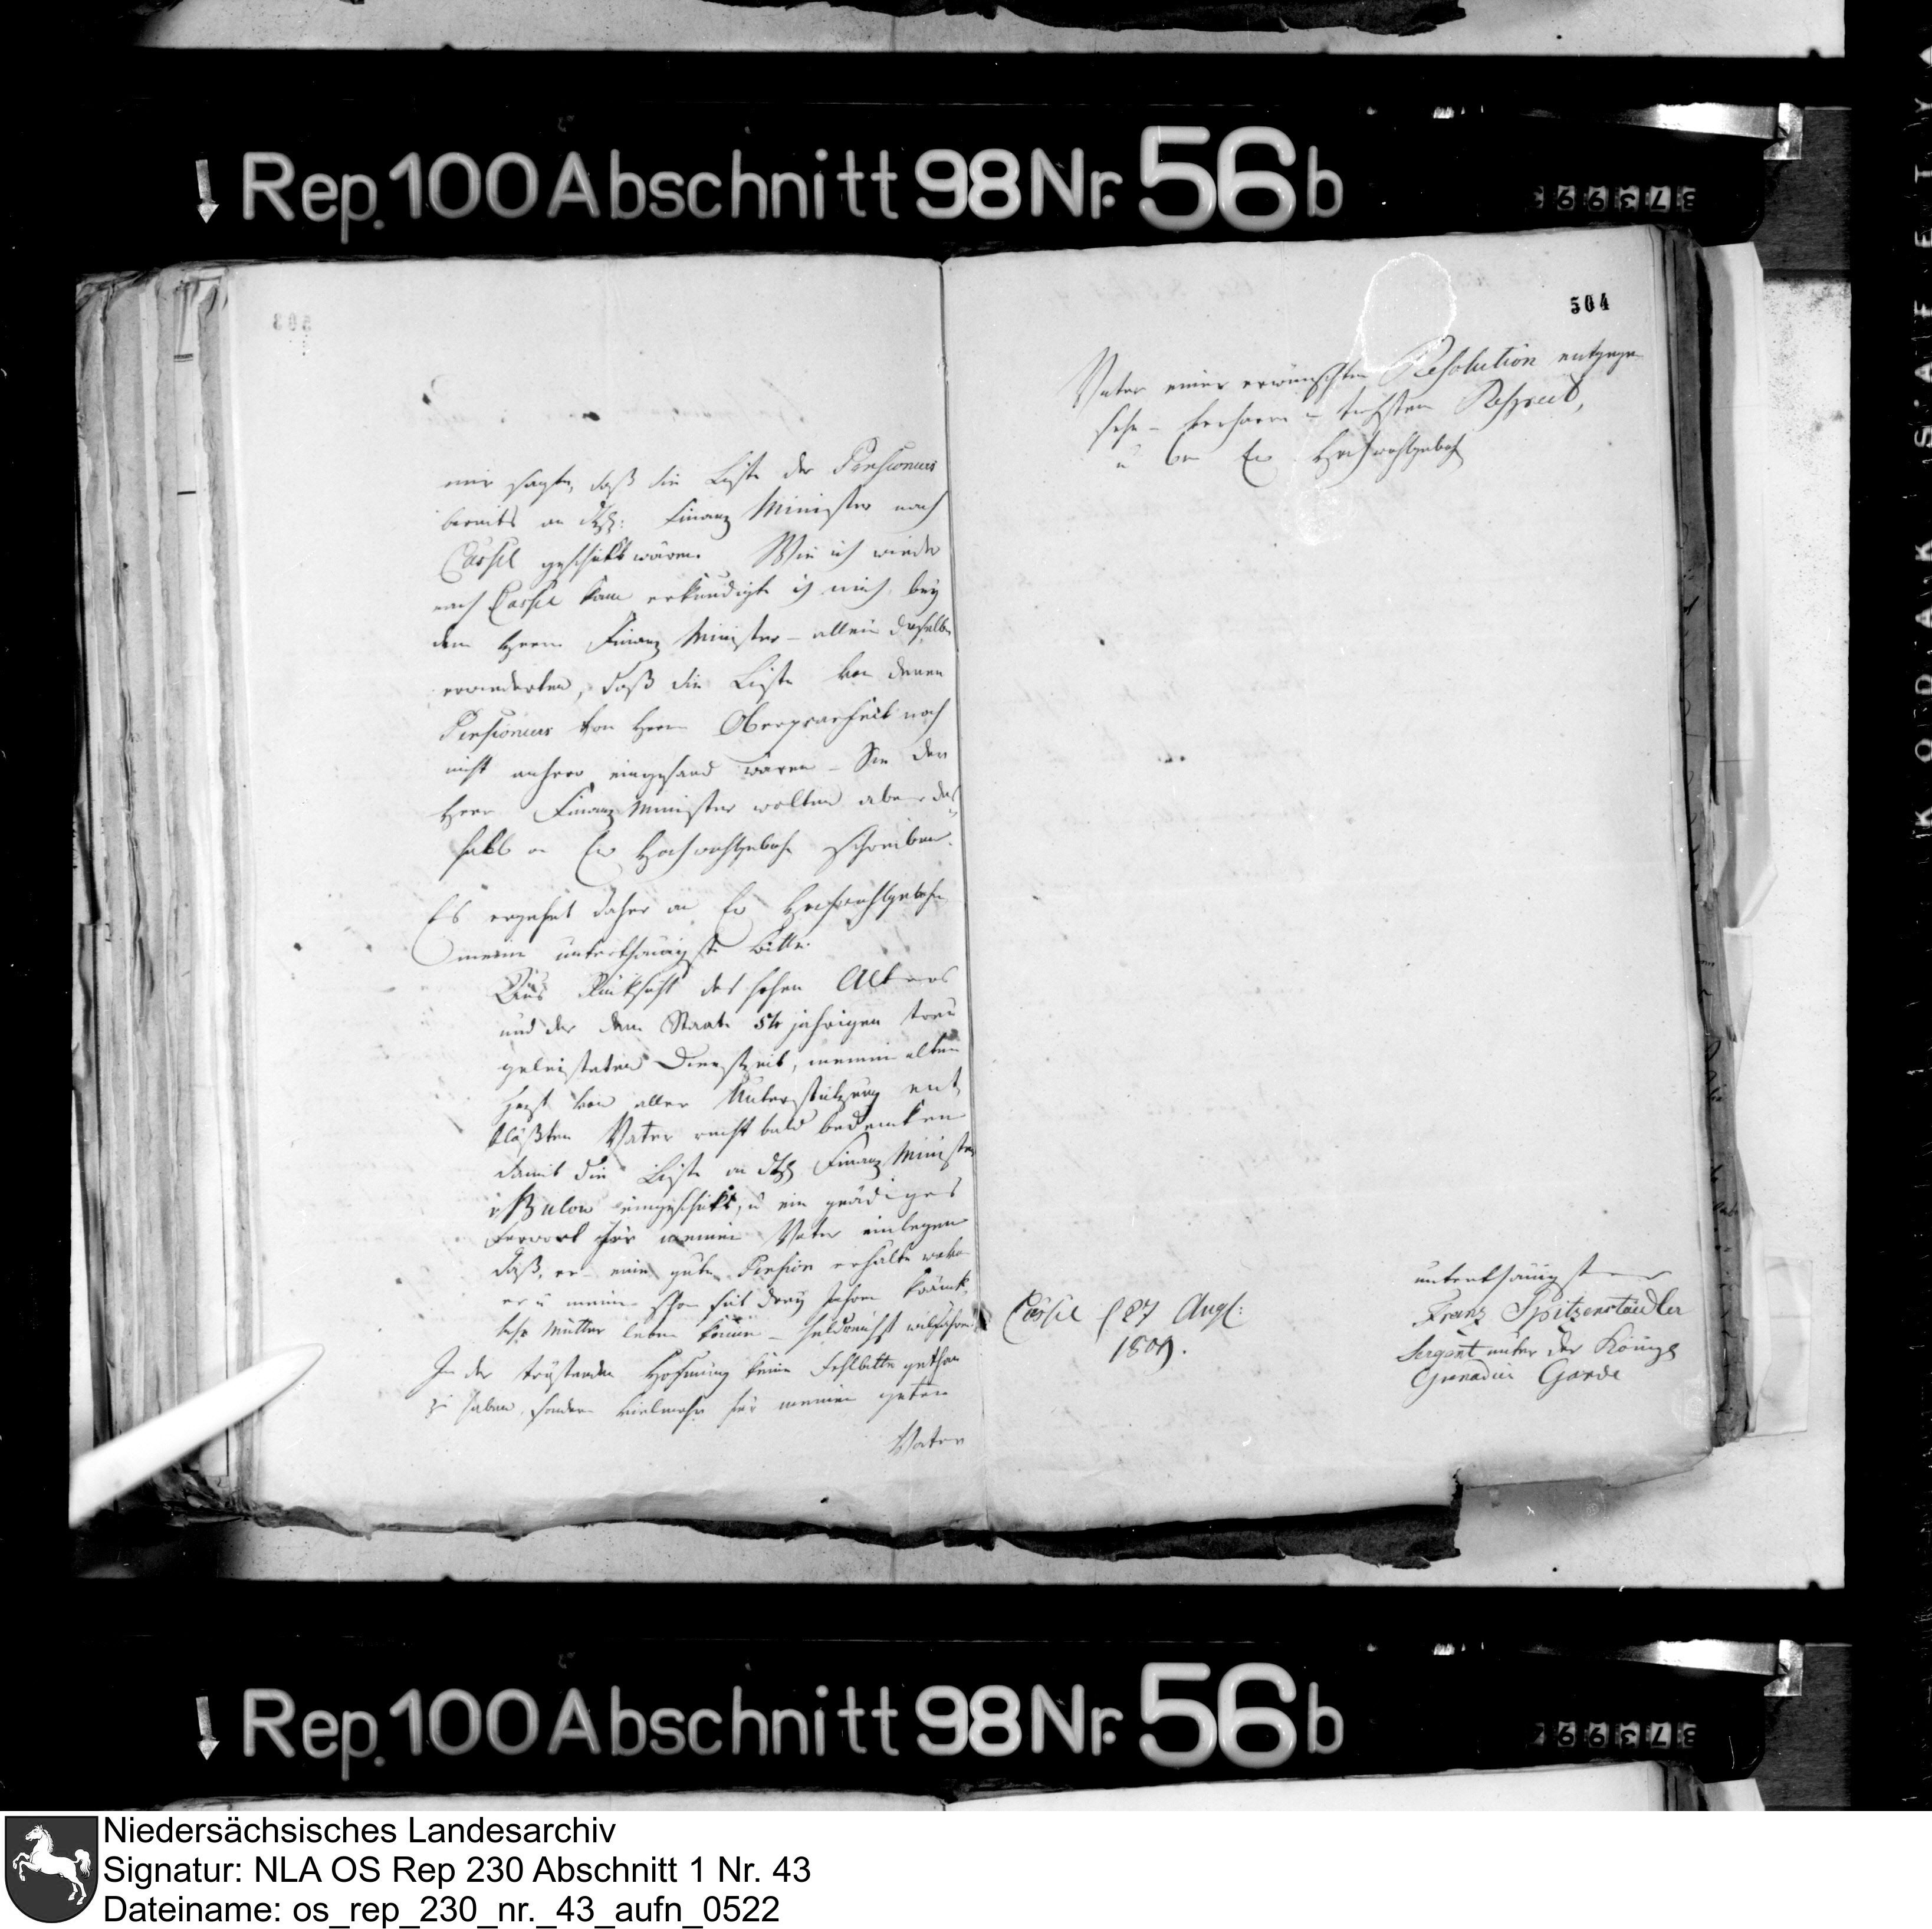 Rep. 100 Abschnitt 98 Nr. 56 b
503
mir sagte, daß die Liste der Pensioniers
bereits an den Finanz Minister nach
Cassel geschikt wären. Wie ich wieder
nach Cassel kam erkundigte ich mich bey
dem Herrn Finanz Minister – allein dieselbe
erwiederten, daß die Liste von denen
Pensioniers von Herrn Oberpraefect noch
nicht anhero eingesand wären – Sie der
Herr Finanz Minister wolten aber des
halb an Ew Hochwohlgebohr schreiben.
Es ergehet daher an Ew Hochwohlgebohr
meine unterthänigste Bitte:
Aus Rüksicht des hohen Alters
und der dem Staate 54 jahrigen treu
geleisteten Dienstzeit, meinen alten
jezt von aller Unterstützung ent
blößten Vater recht bald bedenken
damit die Liste an den Finanz Minister
v Bulow eingeschikt, u ein gnädiges
Vorwort für meinen Vater einlegen
daß er eine gute Pension erhalte wovon
er u meine schon seit drey Jahren kränk
liche Mutter leben könne –
In der tröstenden Hofnung keine Fehlbitte gethan
zu haben, sondern vielmehr für meinen guten
Vater
504
Vater einer erwünschten Resolution entgegen
sehe – verharre in tiefsten Respect,
u bin Ew Hochwohlgebohr
Cassel d 27 Augl:
1809.
unterthänigster
Franz Spitzenstaedler
Sergant unter der Königl
Grenadier Garde
Rep. 100 Abschnitt 98 Nr. 56 b
Niedersächsisches Landesarchiv
Signatur: NLA OS Rep 230 Abschnitt 1 Nr. 43
Dateiname: os_rep_230_nr._43_aufn_0522